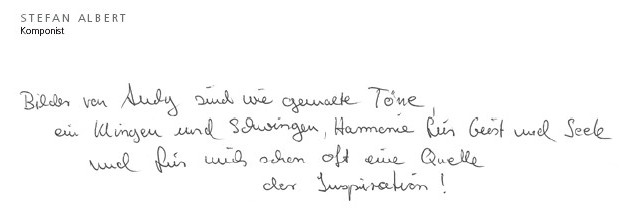 STEFAN ALBERT
Komponist
Bilder von Andy sind wie gemalte Töne,
ein Klingen und Schwingen, Harmonie für Geist und Seele
und für mich schon oft eine Quelle
der Inspiration!